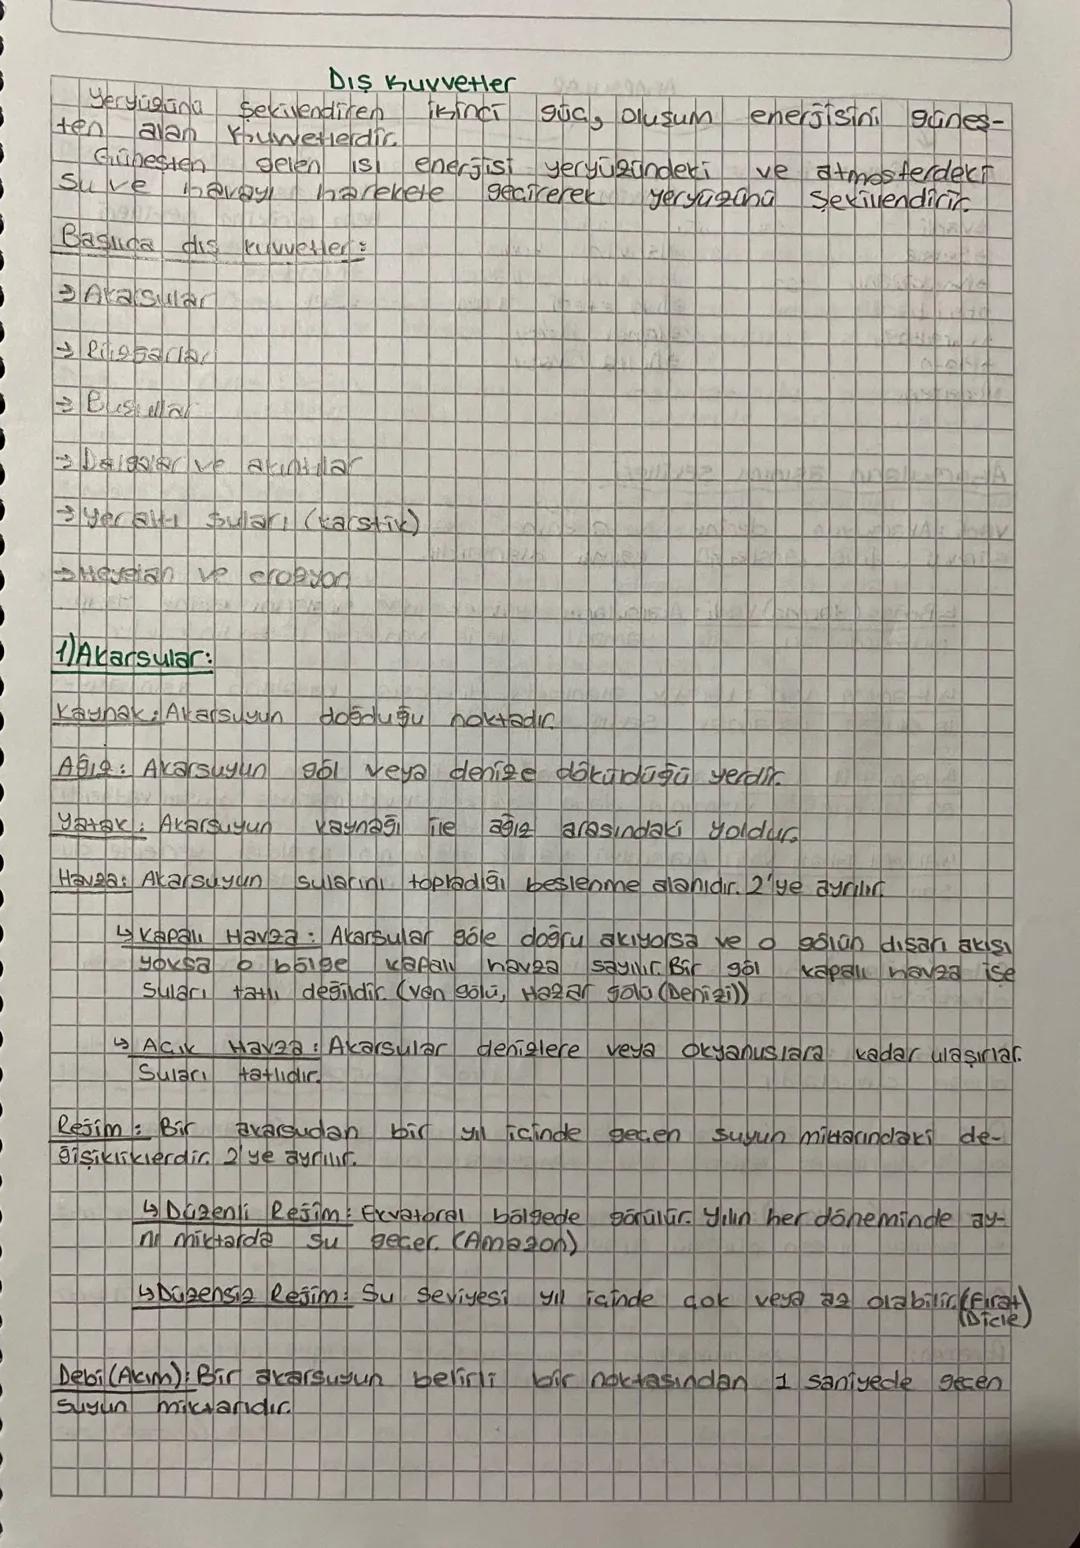 Dış Kuvvetler
Yeryüzünü şekillendiren ikinci güç, oluşum enerjisini güneş-
ten alan kuvvetlerdir.
Güneşten gelen ısı enerjisi yeryüzündeki ve atmosferdeki
su ve havayı harekete geçirerek yeryüzünü şekillendirir.
Başlıca dış kuvvetler:
→ Akarsular
→ Rüzgarlar
→ Buzullar
→ Dalgalar ve akıntılar
→ Yer altı suları (karstik)
→ Heyelan ve erozyon
1) Akarsular:
Kaynak: Akarsuyun doğduğu noktadır.
Ağız: Akarsuyun göl veya denize döküldüğü yerdir.
Yatak: Akarsuyun kaynağı ile ağız arasındaki yoldur.
Havza: Akarsuyun sularını topladığı beslenme alanıdır. 2'ye ayrılır.
↳ Kapalı Havza: Akarsular göle doğru akıyorsa ve o gölün dışarı akışı
yoksa o bölge kapalı havza sayılır. Bir göl kapalı havza ise
suları tatlı değildir. (Van gölü, Hazar gölü (Denizi))
↳ Açık Havza: Akarsular denizlere veya okyanuslara kadar ulaşırlar.
Suları tatlıdır.
Rejim: Bir akarsudan bir yıl içinde geçen suyun miktarındaki de-
ğişikliklerdir. 2'ye ayrılır.
↳ Düzenli Rejim: Ekvatoral bölgede görülür. Yılın her döneminde ay-
nı miktarda su geçer. (Amazon)
↳ Düzensiz Rejim: Su seviyesi yıl içinde çok veya az olabilir. (Fırat)
(Dicle)
Debi (Akım): Bir akarsuyun belirli bir noktasından 1 saniyede geçen
suyun miktarıdır.